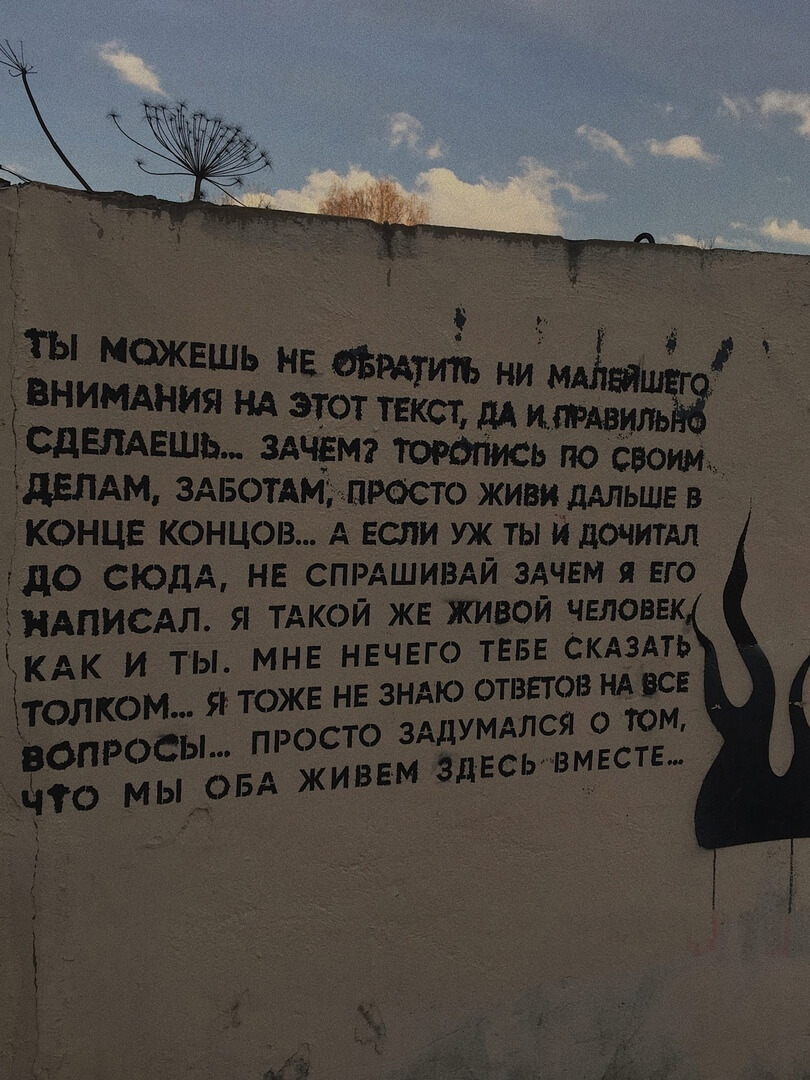 ТЫ МОЖЕШЬ НЕ ОБРАТИТЬ НИ МАЛЕЙШЕГО
ВНИМАНИЯ НА ЭТОТ ТЕКСТ, ДА И ПРАВИЛЬНО
СДЕЛАЕШЬ... ЗАЧЕМ? ТОРОПИСЬ ПО СВОИМ
ДЕЛАМ, ЗАБОТАМ, ПРОСТО ЖИВИ ДАЛЬШЕ В
КОНЦЕ КОНЦОВ... А ЕСЛИ УЖ ТЫ И ДОЧИТАЛ
ДО СЮДА, НЕ СПРАШИВАЙ ЗАЧЕМ Я ЕГО
НАПИСАЛ. Я ТАКОЙ ЖЕ ЖИВОЙ ЧЕЛОВЕК,
КАК И ТЫ. МНЕ НЕЧЕГО ТЕБЕ СКАЗАТЬ
ТОЛКОМ... Я ТОЖЕ НЕ ЗНАЮ ОТВЕТОВ НА ВСЕ
ВОПРОСЫ... ПРОСТО ЗАДУМАЛСЯ О ТОМ,
ЧТО МЫ ОБА ЖИВЕМ ЗДЕСЬ ВМЕСТЕ...